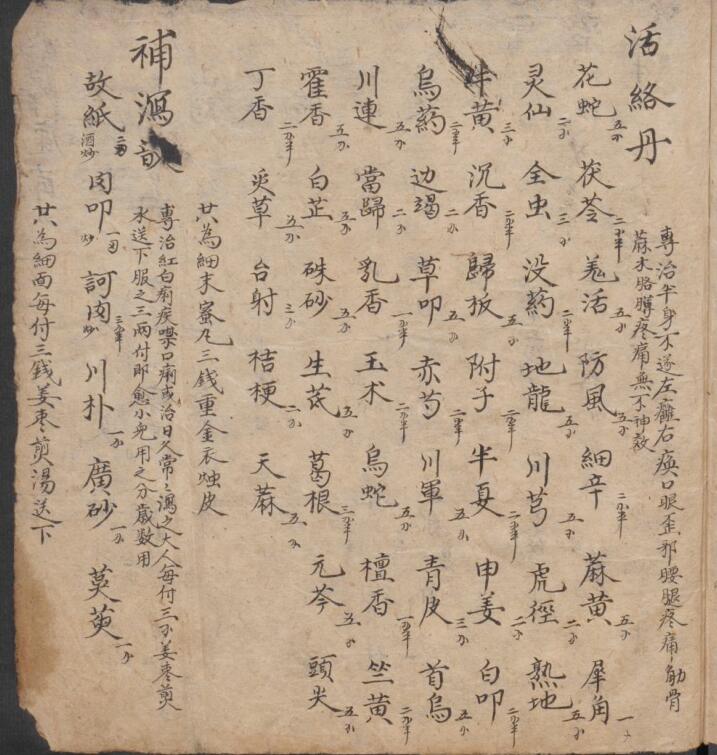 活絡丹
專治半身不遂左癱右瘓口眼歪邪腰腿疼痛觔骨
蔴木胳膊疼痛無不神效
花蛇五分 茯苓二分半 羗活五分 防風五分 細辛二分半 蔴黄五分 犀角一分
灵仙二分 全虫三分 没葯二分半 地龍五分 川芎五分 虎徑二分 熟地五分
牛黄三分 沉香二分半 歸板五分 附子二分半 半夏二分半 申姜二分 白叩二分半
烏葯二分半 边竭二分 草叩五分 赤芍二分半 川軍五分 青皮三分 首烏五分
川連五分 當歸二分 乳香一分半 玉术二分半 烏蛇五分 檀香一分半 竺黄二分半
霍香五分 白芷五分 硃砂五分 生芪五分 葛根三分半 元芩五分 頭尖五分
丁香二分半 炙草五分 台射三分 桔梗二分 天蔴五分
共為細末蜜丸三錢重金衣燭皮
補瀉
專治紅白痢疾噤口痢或治日久常々瀉之大人每付三分姜枣煎
水送下服之三兩付即愈小兒用之分歲数用
故紙酒炒 肉叩一分炒 訶肉三分半炒 川朴一分 廣砂一分 茱萸一分
共為細面每付三錢姜枣煎湯送下